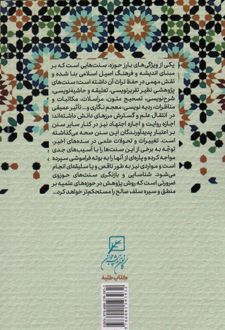 یکی از ویژگی‌های بارز حوزه، سنت‌هایی است که بر
مبنای اندیشه و فرهنگ اصیل اسلامی بنا شده و
نقش مهمی در حفظ تراث آن داشته است؛ سنت‌های
پژوهشی نظیر تقریرنویسی، تعلیقه و حاشیه‌نویسی،
شرح‌نویسی، تصحیح متون، مراسلات، مکاتبات و
مناظرات، ردیه نویسی، معجم نگاری و... تأثیر عمیقی
در انتقال علم و گسترش مرزهای دانش داشته‌اند؛
اجازه روایت و اجازه اجتهاد نیز در کنار سایر سنن
بر اعتبار پدیدآورندگان این سنن صحه می‌گذاشته
است. تغییرات و تحولات علمی در سده‌های اخیر،
توجه به برخی از این سنت‌ها را با آسیب‌های جدی
مواجه کرده و پاره‌ای از آنها را به بوته فراموشی سپرده
و مواردی نیز به طور ناقص و یا سلیقه‌ای انجام
می‌شود. شناسایی و بازنگری سنت‌های حوزوی
ضرورتی است که روش پژوهش در حوزه‌های علمیه بر
منطق و سیره سلف صالح را مستحکم‌تر خواهد کرد...
کتاب طلبه